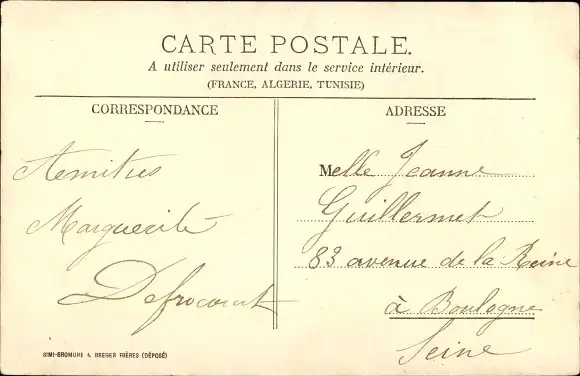 CARTE POSTALE.
A utiliser seulement dans le service intérieur.
(FRANCE, ALGERIE, TUNISIE)
CORRESPONDANCE
ADRESSE
Amitiés
Marguerite
Defrocourt
Melle Jeanne
Guillermet
83 avenue de la Reine
à Boulogne
Seine
SIMI-BROMURE A. BREGER FRÈRES (DÉPOSÉ)